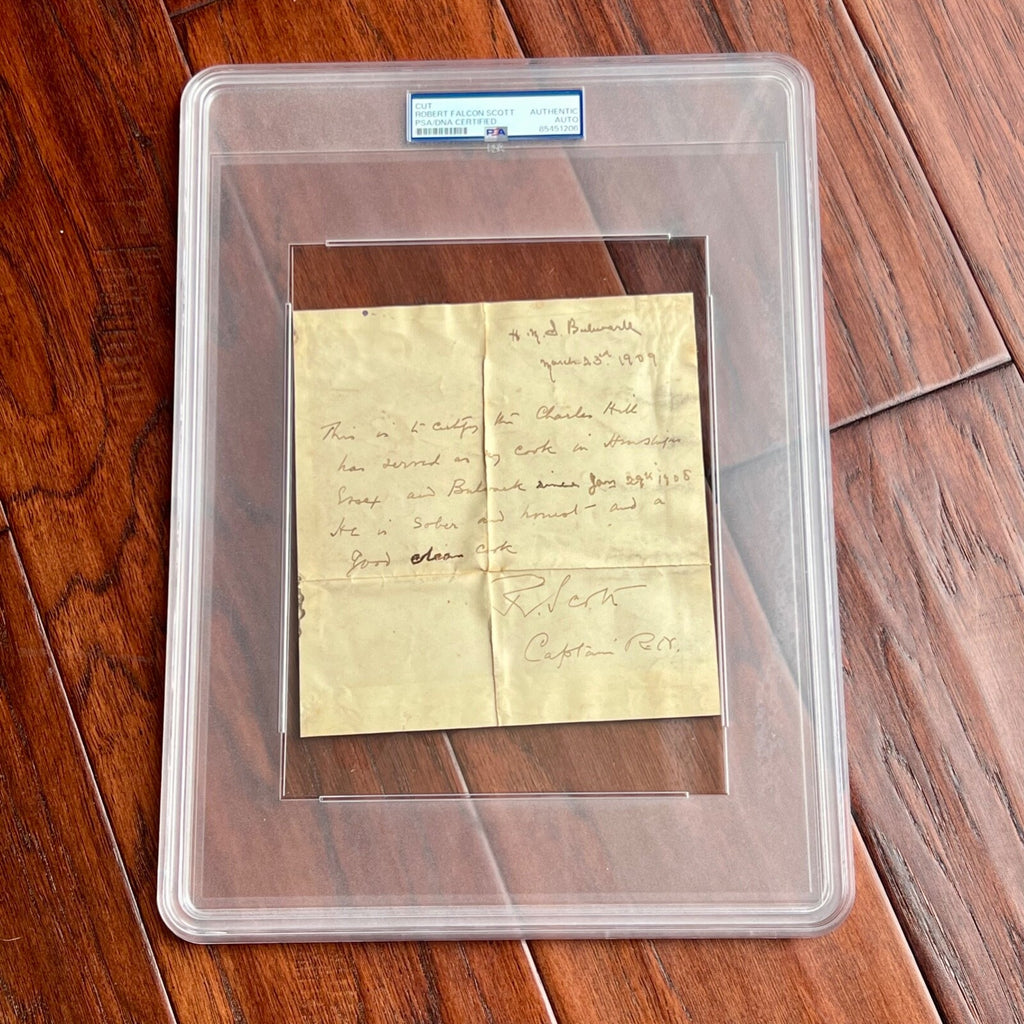 CUT
ROBERT FALCON SCOTT
PSA/DNA CERTIFIED
AUTHENTIC
AUTO
85451206
PSA
H.M.S. Bulwark
March 23rd. 1909
This is to certify that Charles Hill
has served as my cook in HM ships
Essex and Bulwark since Jany 29th 1908
He is sober and honest - and a
good clean cook
R. Scott
Captain R.N.